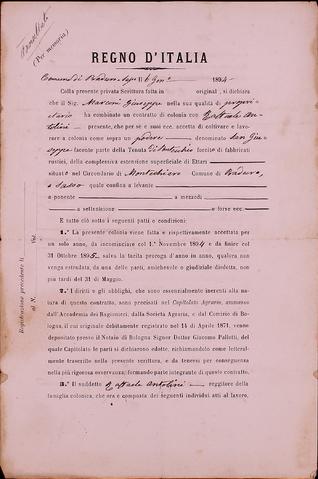 Annullato
(Per memoria)
REGNO D'ITALIA
Comune di Praduro Sasso li 6 Gen.° 1894
Colla presente privata Scrittura fatta in original , si dichiara
che il Sig. Marconi Giuseppe nella sua qualità di propri-
etario ha combinato un contratto di colonia con Raffaele An-
tolini presente, che per sè e suoi ecc. accetta di coltivare e lavo-
rare a colonia come sopra un podere denominato San Giu-
seppe facente parte della Tenuta di Pontecchio fornito di fabbricati
rustici, della complessiva estensione superficiale di Ettari
situato nel Circondario di Comune di Praduro,
e Sasso quale confina a levante
a ponente a mezzodì
a settentrione e forse ecc.
E tutto ciò sotto i seguenti patti e condizioni:
1.° La presente colonia viene fatta e rispettivamente accettata per
un solo anno, da incominciare col 1.° Novembre 1894 e da finire col
31 Ottobre 1895, salva la tacita proroga d'anno in anno, qualora non
venga estradata, da una delle parti, amichevole o giudiziale disdetta, non
più tardi del 31 di Maggio.
2.° I diritti e gli obblighi, che sono essenzialmente inerenti alla na-
tura di questo contratto, sono precisati nel Capitolato Agrario, ammesso
dall'Accademia dei Ragionieri, dalla Società Agraria, e dal Comizio di Bo-
logna, il cui originale debitamente registrato nel 14 di Aprile 1871, venne
depositato presso il Notaio di Bologna Signor Dottor Giacomo Pallotti, del
quale Capitolato le parti si dichiarono edotte, richiamandolo come letteral-
mente trascritto nella presente scrittura, e da tenersi per conseguenza
nella più rigorosa osservanza; formando parte integrante di questo contratto.
3.° Il suddetto Raffaele Antolini reggitore della
famiglia colonica, che ora è composta dei seguenti individui atti al lavoro,
Registrazione precedente li
al N. Vol.